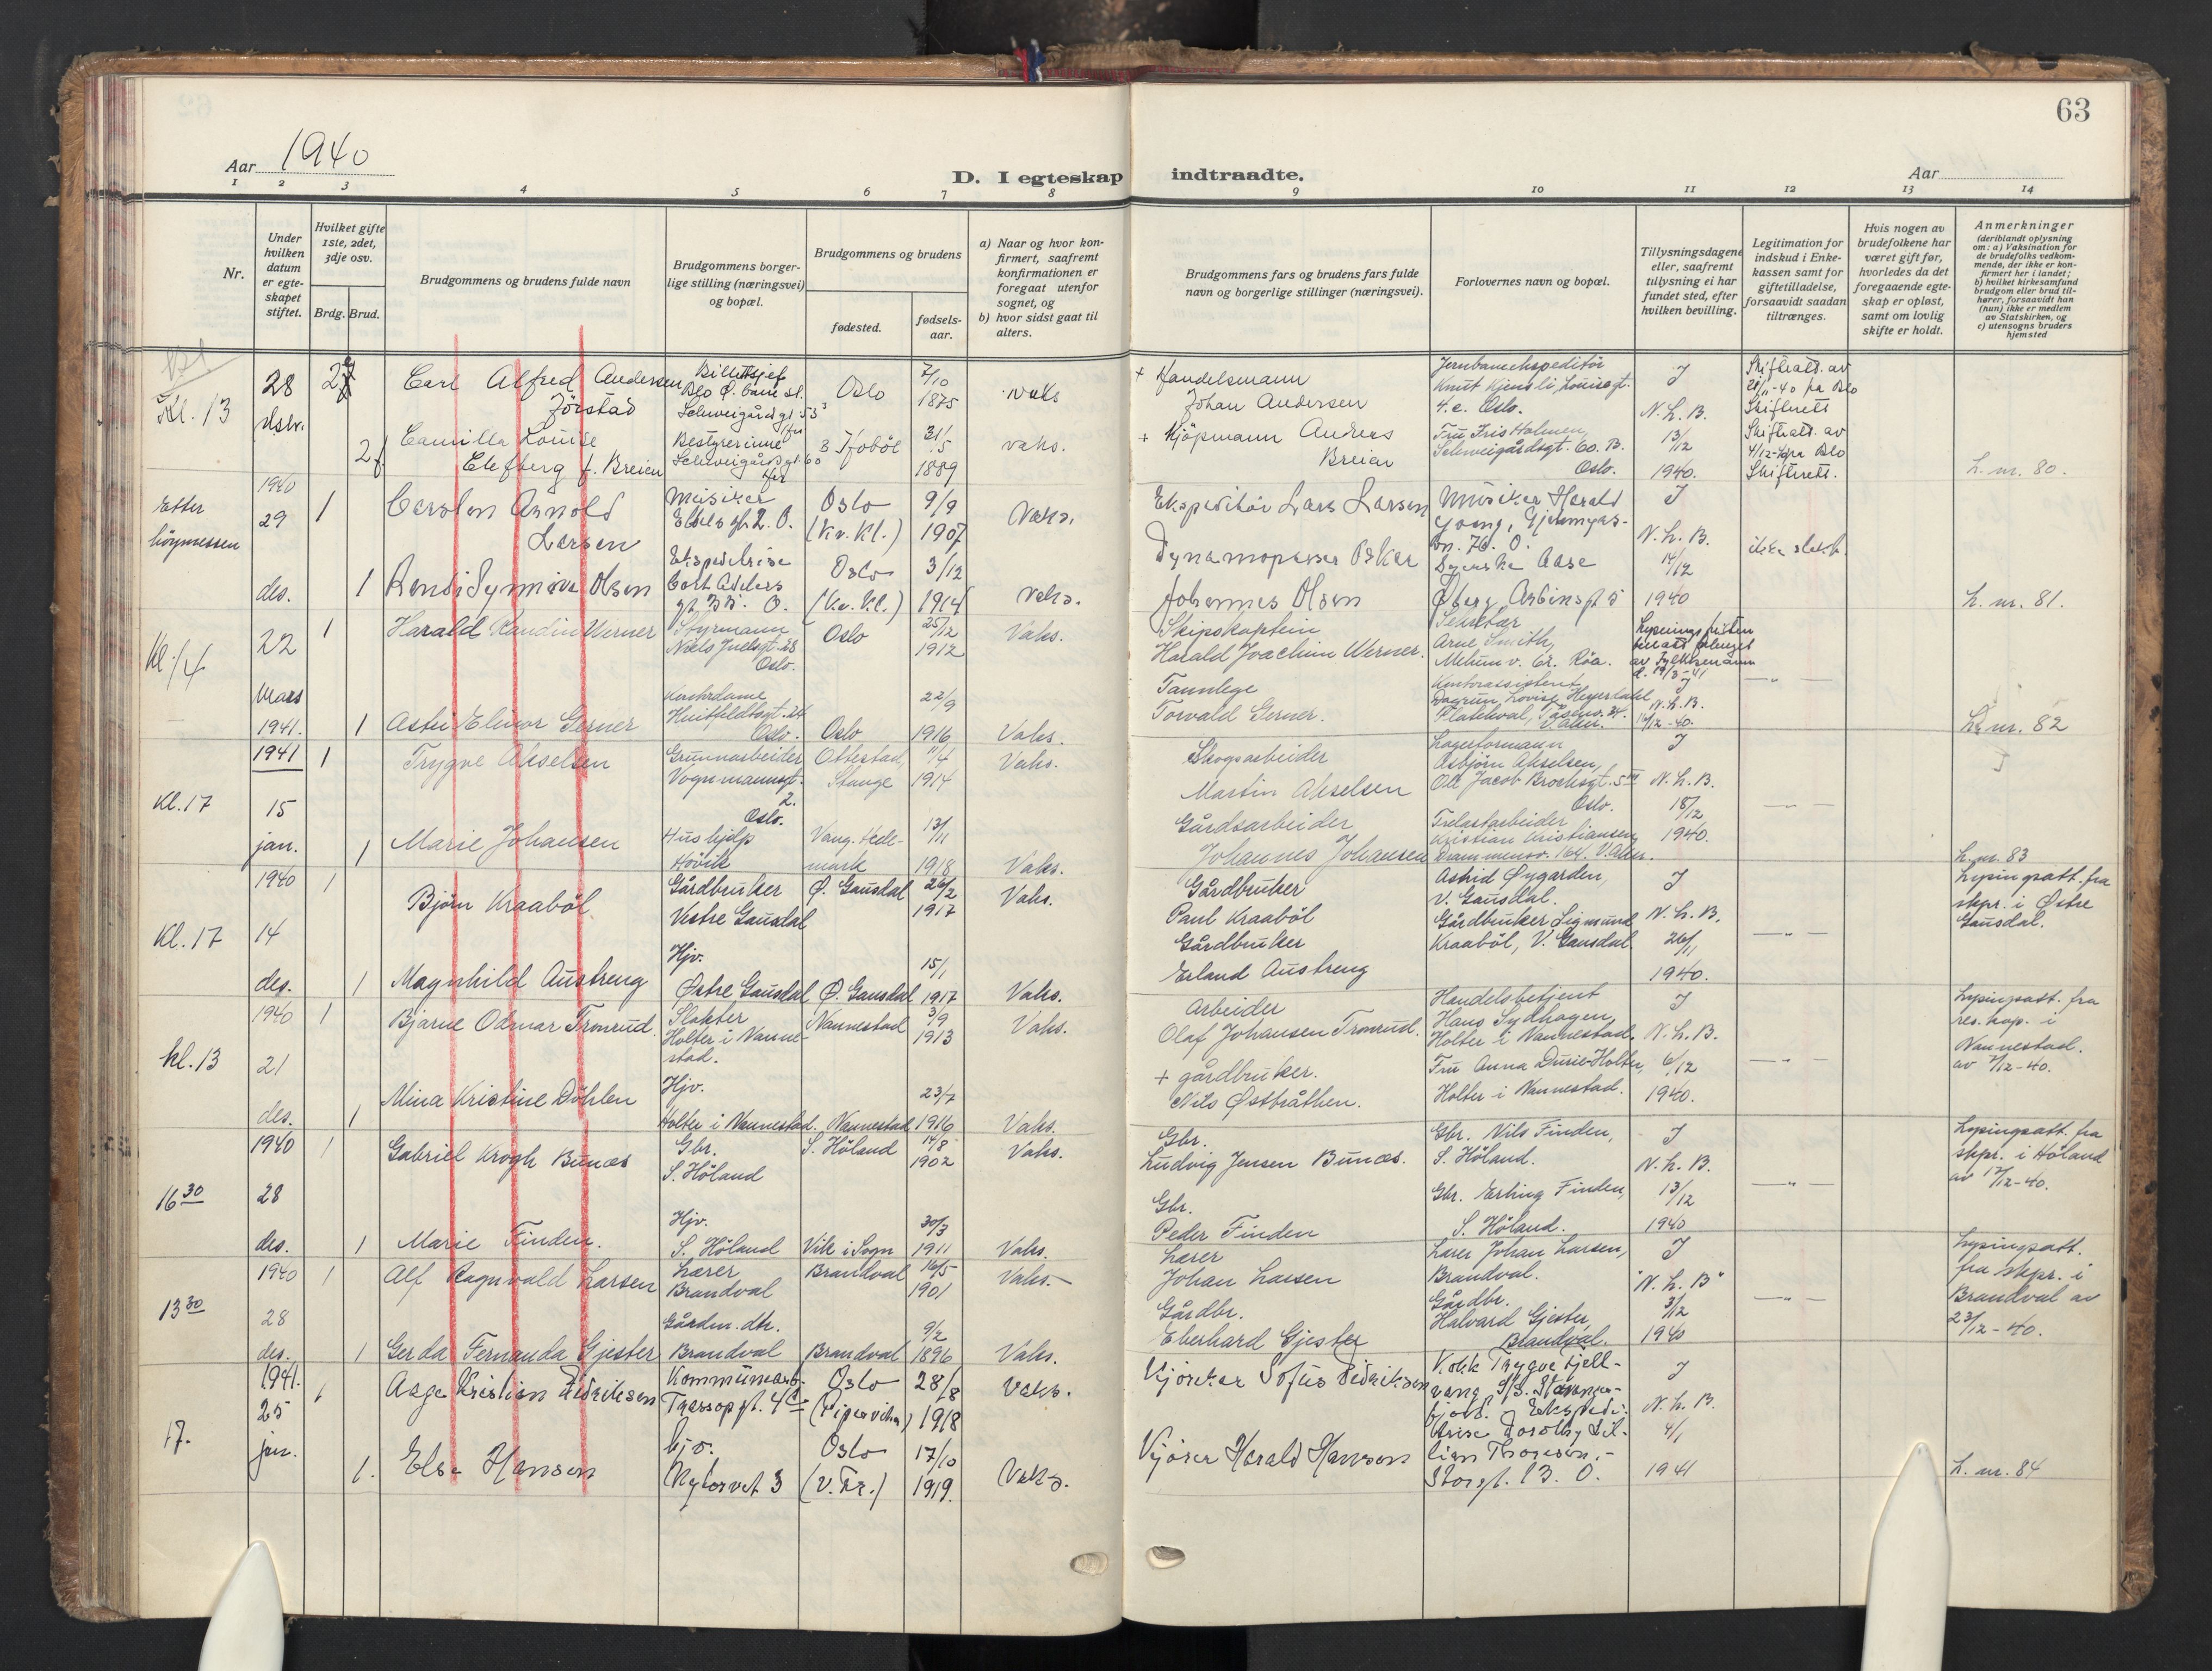 63
Aar 1940
D. I egteskap indtraadte.
Aar
1 2 3 4 5 6 7 8 9 10 11 12 13 14
Nr.
Under hvilken datum er egteskapet stiftet.
Hvilket gifte 1ste, 2det, 3dje osv.
Brdg. Brud.
Brudgommens og brudens fulde navn
Brudgommens borgerlige stilling (næringsvei) og bopæl.
Brudgommens og brudens
fødested.
fødselsaar.
a) Naar og hvor konfirmert, saafremt konfirmationen er foregaat utenfor sognet, og
b) hvor sidst gaat til alters.
Brudgommens fars og brudens fars fulde navn og borgerlige stillinger (næringsvei).
Forlovernes navn og bopæl.
Tillysningsdagene eller, saafremt tillysning ei har fundet sted, efter hvilken bevilling.
Legitimation for indskud i Enkekassen samt for giftetilladelse, forsaavidt saadan tiltrænges.
Hvis nogen av brudefolkene har været gift før, hvorledes da det foregaaende egteskap er opløst, samt om lovlig skifte er holdt.
Anmerkninger (deriblandt oplysning om: a) Vaksination for de brudefolks vedkommende, der ikke er konfirmert her i landet; b) hvilket kirkesamfund brudgom eller brud tilhører, forsaavidt han (hun) ikke er medlem av Statskirken, og c) utensogns bruders hjemsted
Kl. 13
28
Carl Alfred Andersen
Jörstad
Billettsjef
Oslo Ø. bane st.
Schweigårdsgt. 53
Oslo
7/10 1875
vaks
+ Handelsmann
Johan Andersen
Jernbaneekspeditör
Knut Kjensli, Louisegt.
4.c. Oslo.
J
N. L. B.
13/12
1940.
Skifteatt. av
28/11-40 fra Oslo
Skifterett
2 f.
Camilla Louise
f. Breien
Bestyrerinne
Schweigårdsgt. 60
31/5 1889
vaks.
+ Kjöpmann Anders
Breien
Fru Iris Holmen,
Schweigårdsgt. 60. B.
Oslo.
Skifteatt. av
4/12-40 fra Oslo
Skifterett.
L. nr. 80.
Etter
höymessen
1940
29
des.
1
Carsten Arnold
Larsen
Musiker
Oslo
(Kv. Kl.)
9/9 1907
Vaks.
Ekspeditör Lars Larsen
Musiker Harald
J
N. L. B.
14/12
1940
1
Randi Synnöve Olsen
Ekspeditrise
Cort Adelers
gt. 33. O.
Oslo
(Kv. Kl.)
3/12 1914
Vaks.
Dynamopasser Oskar
Johannes Olsen
Syerske Aase
Öberg, Arbinsgt 5
L. nr. 81.
Kl. 14
22
Mars
1941.
1
Harald Randin Werner
Styrmann
Niels Juelsgt. 28
Oslo.
Oslo
25/12 1912
Vaks.
Skipskaptein
Harald Joachim Werner.
Sekretær
Arne Smith,
Melumv. 62. Röa.
Lysningsfristen
av Fylkesmann
1
Astri Elinor Gerner
Kontordame
Huitfeldtsgt. 24
Oslo.
Oslo
22/9 1916
Vaks.
Tannlege
Torvald Gerner.
Kontorassistent
J
N. L. B.
16/12-40.
L. nr. 82
Kl. 17
1941
15
jan.
1
Trygve Akselsen
Grunnarbeider
Vognmannsgt.
2.
Oslo.
Ottestad,
Stange
11/4 1914
Vaks.
Skogsarbeider
Martin Akselsen
Lagerformann
Asbjörn Akselsen,
Ole Jacob Brochsgt. 5 III
Oslo.
J
N. L. B.
18/12
1940.
1
Marie Johansen
Hushjelp
Hövik
Vang. Hedemark
13/11 1918
Vaks.
Gårdsarbeider
Johannes Johansen
Trelastarbeider
Kristian Kristiansen
Drammensv. 164. V. Aker.
L. nr. 83
Kl. 17
1940
14
des.
1
Björn Kraaböl
Gårdbruker
Vestre Gausdal
Ø. Gausdal
26/2 1917
Vaks.
Gårdbruker
Paul Kraaböl
Astrid Øygarden,
V. Gausdal.
J
N. L. B.
26/11
1940.
Lysingsatt. fra
skpr. i Østre
Gausdal.
1
Magnhild Austreng
Hjv.
Østre Gausdal
Ø. Gausdal
15/1 1917
Vaks.
Gårdbruker
Erland Austreng
Gårdbruker Sigmund
Kraaböl, V. Gausdal
Kl. 13
1940
21
des.
1
Bjarne Odmar Tronrud
Slakter
Holter i Nannestad.
Nannestad
3/9 1913
Vaks.
Arbeider
Olaf Johansen Tronrud.
Handelsbetjent
Hans Sydhagen,
Holter i Nannestad.
J
N. L. B.
6/12
1940.
Lysingsatt. fra
res. kap. i
Nannestad.
av 7/12-40.
1
Mina Kristine Döhlen
Hjv.
Holter i Nannestad.
Nannestad
23/7 1916
Vaks.
+ gårdbruker.
Nils Østbråthen.
Fru Anna Holter,
Holter i Nannestad.
16 30
1940
28
des.
1
Gabriel Krogh Bunæs
Gbr.
S. Höland
S. Höland
14/8 1902
Vaks.
Gbr.
Ludvig Jensen Bunæs.
Gbr. Nils Finden,
S. Höland.
J
N. L. B.
13/12
1940
Lysingsatt. fra
skpr. i Höland
av 17/12-40.
1
Marie Finden.
Hjv.
S. Höland
Vik i Sogn
30/3 1911
Vaks.
Gbr.
Peder Finden
Gbr. Erling Finden,
S. Höland.
13 30
1940
28
des.
1
Alf Ragnvald Larsen
Lærer
Brandval
Brandval
16/5 1901
Vaks.
Lærer
Johan Larsen
Lærer Johan Larsen,
Brandval.
J
"N. L. B"
3/12
1940
Lysingsatt.
fra skpr. i
Brandval av
23/12-40.
1
Gerda Fernanda Gjester
Gårdm. dtr.
Brandval
Brandval
9/2 1896
Vaks.
Gårdbr.
Eberhard Gjester
Gårdbr.
Halvard Gjester,
Brandval.
17.
1941.
25
jan.
1
Aage Kristian Didriksen
Kommunearb.
Oslo
(Pipervika)
28/8 1918
Vaks.
Kjörekar Sofus Didriksen
Kokk Trygve Fjellvang, S/S. Stavangerfjord. og Ekspeditrise Dorothy Lillian Thoresen,
Storgt. 13. O.
J
N. L. B.
4/1
1941
1.
Else Hansen
hjv.
Nytorvet 3
Oslo
(V. Fr.)
17/10 1919.
Vaks.
Kjörer Harald Hansen
L. nr. 84